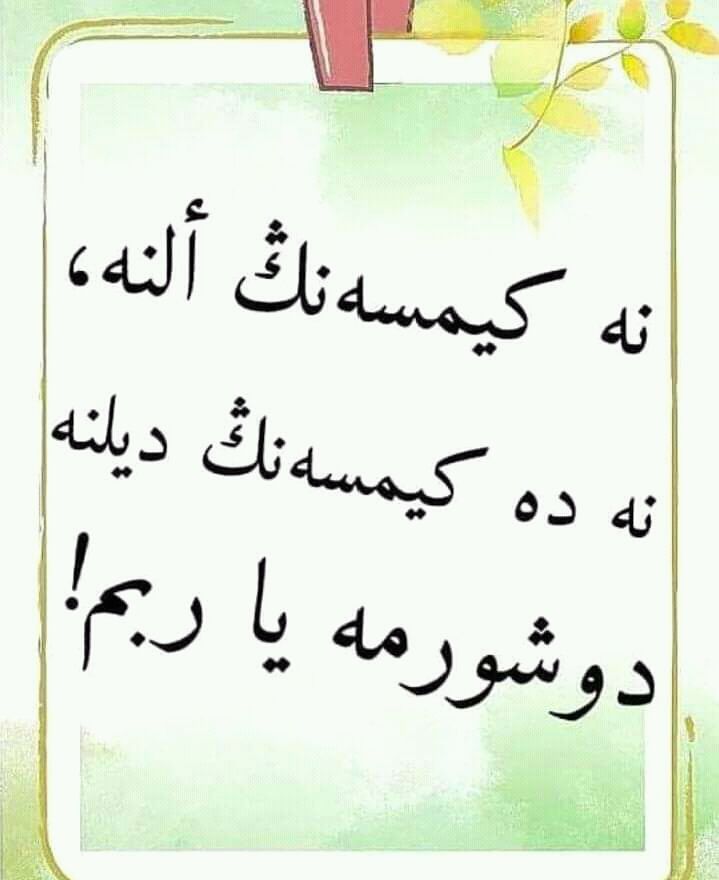 نه كیمسه‌نڭ ألنه،
نه ده كیمسه‌نڭ دیلنه
دوشورمه یا ربم!